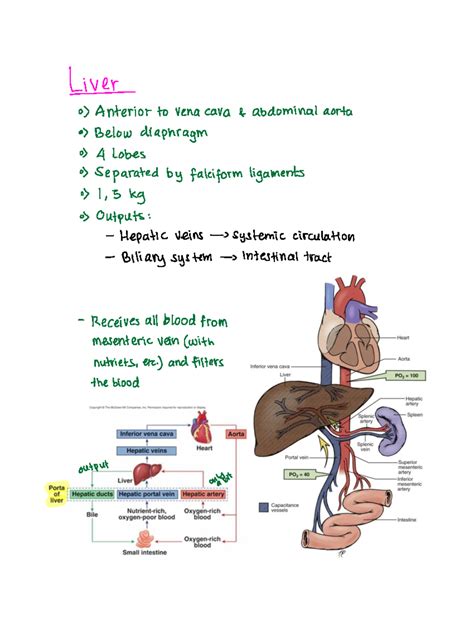 Liver
o) Anterior to vena cava & abdominal aorta
o) Below diaphragm
o) 4 lobes
o) Separated by falciform ligaments
o) 1,5 kg
o) Outputs:
- Hepatic veins → systemic circulation
- Biliary system → Intestinal tract
- Receives all blood from
mesenteric vein (with
nutriets, etc.) and filters
the blood
Copyright © The McGraw-Hill Companies, Inc. Permission required for reproduction or display.
Inferior vena cava
Aorta
Heart
Hepatic veins
output
Liver
Porta
of
liver
Hepatic ducts
Hepatic portal vein
Hepatic artery
Bile
Nutrient-rich,
oxygen-poor blood
Oxygen-rich
blood
Small intestine
Oxygen-rich
blood
Heart
Aorta
Inferior vena cava
Liver
PO₂ = 100
Hepatic
artery
Splenic
artery
Spleen
Splenic
vein
Portal vein
Superior
mesenteric
artery
PO₂ = 40
Inferior
mesenteric
artery
Capacitance
vessels
Intestine